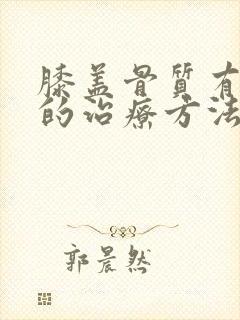 膝盖骨質有
的治療方法
郭晨然